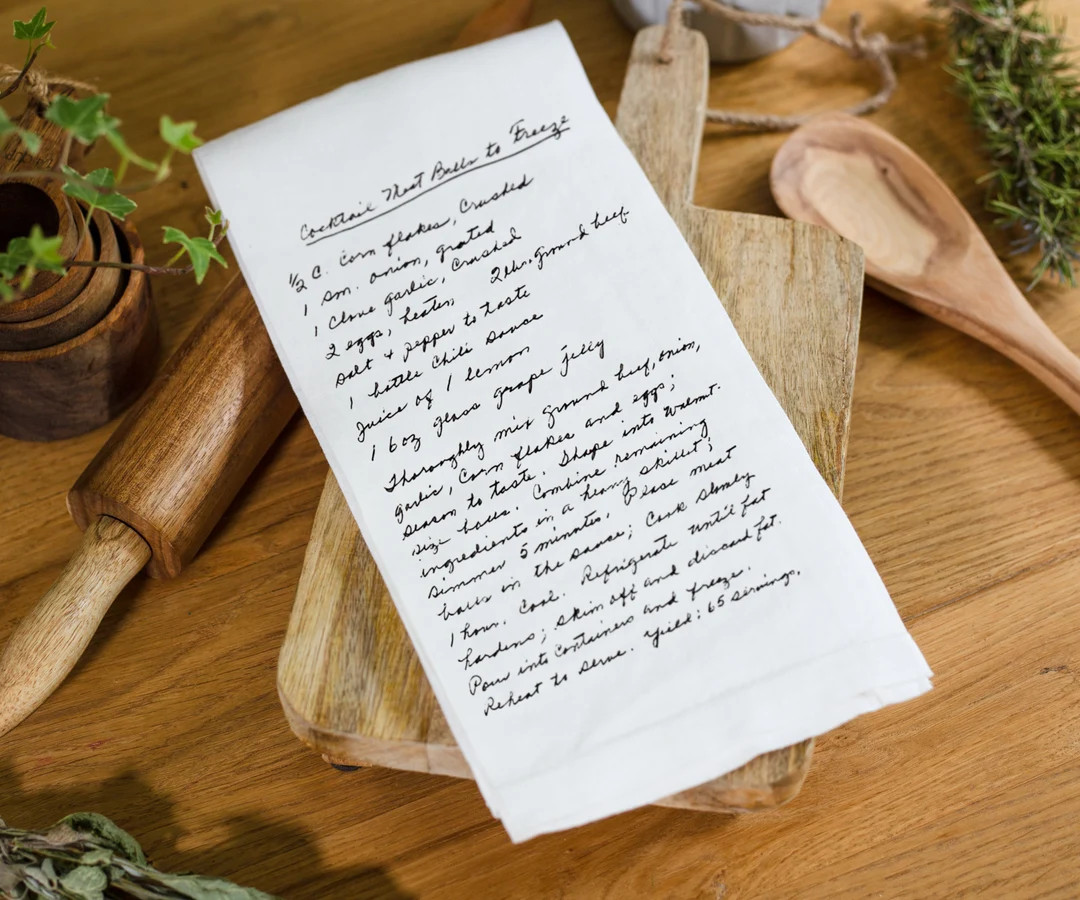 Cocktail Meat Balls to Freeze
1/2 C. Corn flakes, Crushed
1 sm. onion, grated
1 Clove garlic, Crushed
2 eggs, beaten 2 lbs. ground beef
Salt + pepper to taste
1 bottle Chili Sauce
Juice of 1 lemon
1 6 oz glass grape jelly
Thoroughly mix ground beef, onion,
garlic, Corn flakes and eggs;
Season to taste. Shape into Walnut
size balls. Combine remaining
ingredients in a heavy skillet;
Simmer 5 minutes. Place meat
balls in the sauce; Cook slowly
1 hour. Cool. Refrigerate until fat
hardens; skim off and discard fat.
Pour into Containers and freeze.
Reheat to serve. Yield: 65 servings.